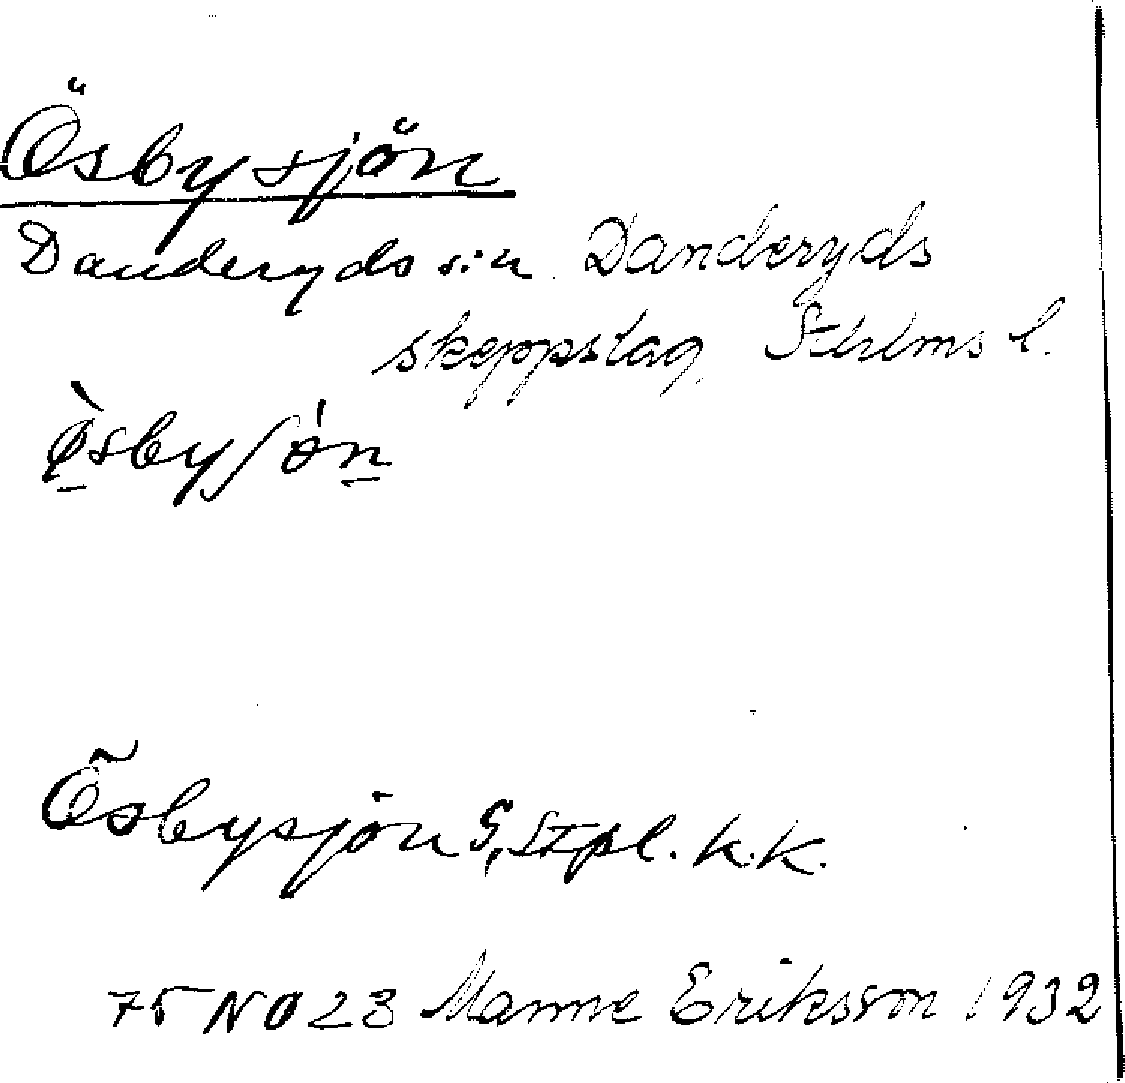 Ösbysjön
Danderyds sn. Danderyds
skeppslag, Sthlms l.
ø̀sbyʃǿn
Ösbysjön G, Stpl. k.k.
75 NO 23 Manne Eriksson 1932